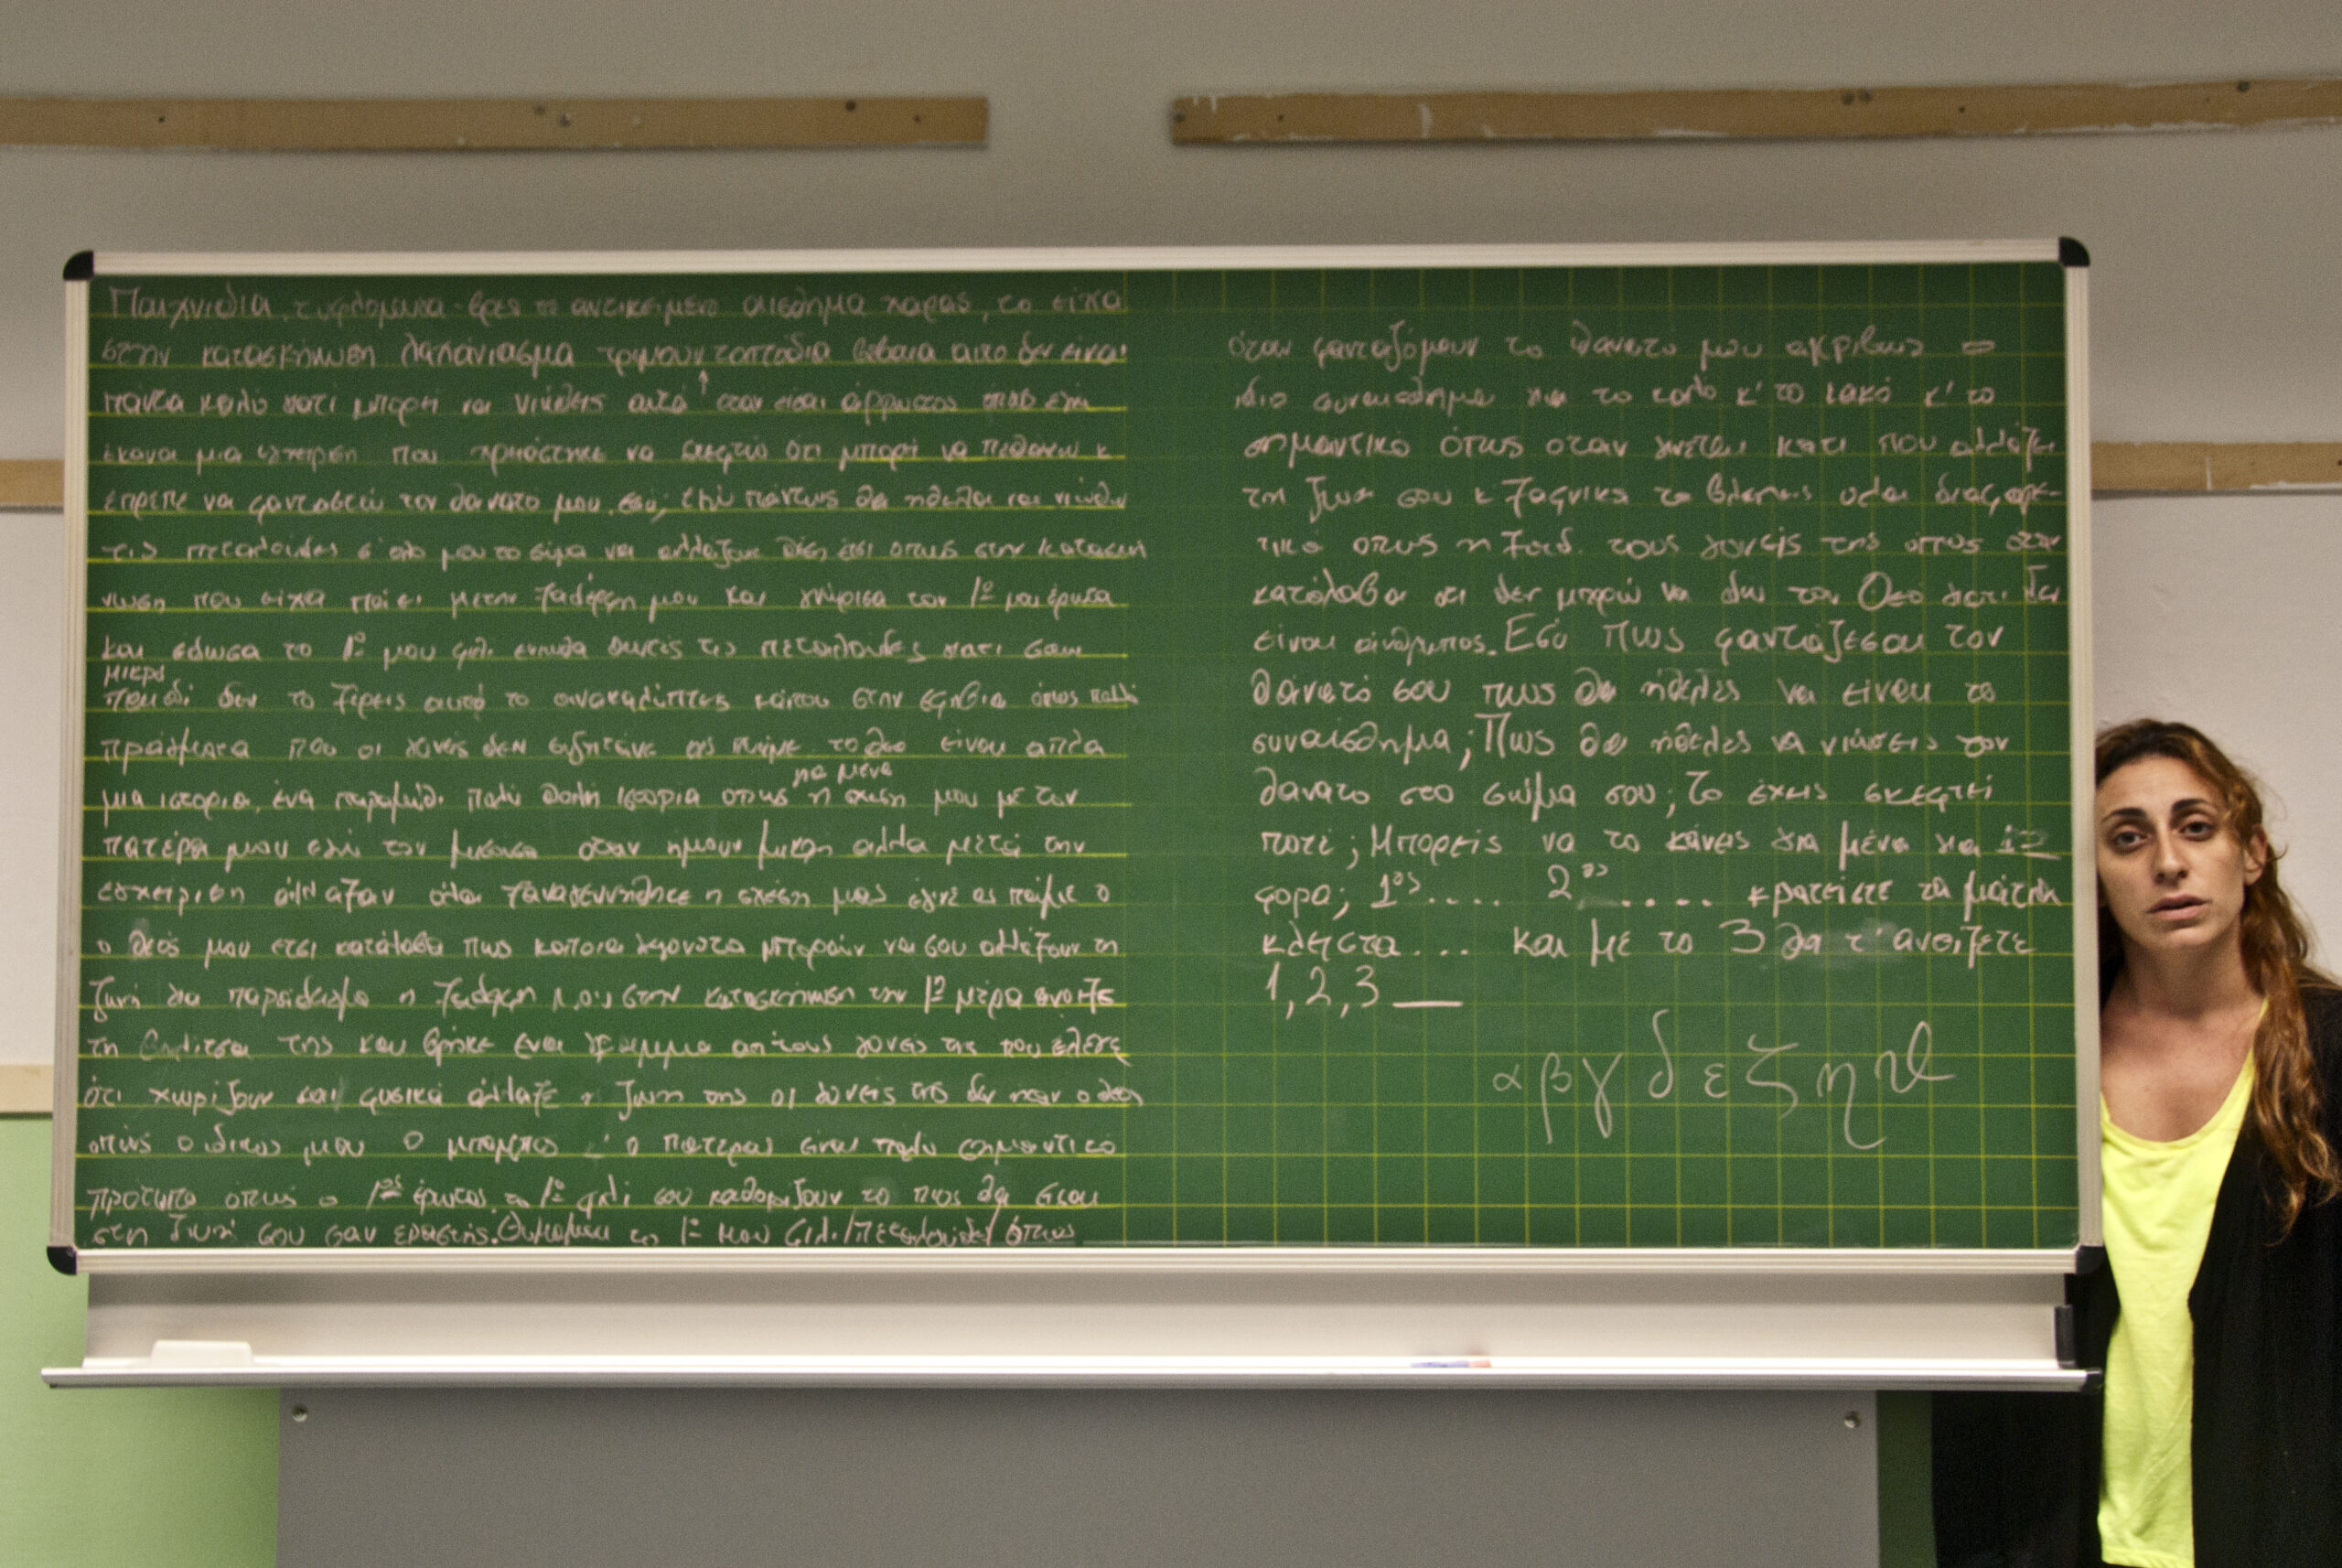 Παιχνιδια, τυφλόμυγα-βρες το αντικείμενο αισθημα χαρας, το είχα
στην κατασκήνωση λαχάνιασμα τρεμουν τα πόδια βέβαια αυτο δεν είναι
πάντα καλό γιατί μπορεί να νιώθεις αυτά όταν είσαι άρρωστος όταν εγώ
έκανα μια εγχείρηση που χρειάστηκε να σκεφτώ ότι μπορεί να πεθάνω κ
έπρεπε να φανταστώ τον θανατο μου. εσύ; εγώ πάντως θα ηθελα να νιώθω
τις πεταλούδες σ'ολο μου το σώμα να αλλάζουν θέση έτσι οπως στην κατασκή
νωση που είχα πάει με την ξαδέρφη μου και γνώρισα τον 1º μου έρωτα
και έδωσα το 1º μου φιλί ένιωθα αυτές τις πεταλούδες γιατι σαν
μικρό
παιδί δεν το ξέρεις αυτό το ανακαλύπτεις κάπου στην εφηβεία όπως πολλά
πράγματα που οι γονείς δεν εξηγούνε ας πούμε το θεο είναι απλα
για μένα
μια ιστορία, ένα παραμύθι πολύ καλή ιστορία οπως η σχέση μου με τον
πατέρα μου εγώ τον μισούσα οταν ήμουν μικρή αλλα μετά την
εγχείριση άλλαξαν όλα ξαναγεννήθηκε η σχέση μας έγινε ας πούμε ο
ο θεός μου ετσι κατάλαβα πως κάποια γεγονότα μπορούν να σου αλλάξουν τη
ζωή για παράδειγμα η ξαδέρφη μου στην κατασκήνωση την 1º μέρα άνοιξε
τη βαλίτσα της και βρήκε ένα γράμμα απ'τους γονείς της που έλεγε
ότι χωρίζουν και φυσικά άλλαξε η ζωή της οι γονείς της δεν ηταν ο θεος
οπως ο δικος μου Ο μπαμπας κ' ο πατέρας είναι πολύ σημαντικό
πρότυπο όπως ο 1ος έρωτας. το 1º φιλί σου καθορίζουν το πως θα είσαι
στη ζωή σου σαν εραστής. Θυμαμαι το 1º μου φιλί/πεταλούδες/όπως
όταν φανταζόμουν το θάνατο μου ακριβως το
ιδιο συναισθημα για το καλο κ' το κακό κ' το
σημαντικό όπως οταν γινεται κατι που αλλάζει
τη ζωη σου κ ξαφνικα τα βλέπεις ολα διαφορε-
τικά οπως η ξαδ. τους γονείς της όπως όταν
κατάλαβα οτι δεν μπορώ να δω τον Θεό γιατι δεν
είναι άνθρωπος. Εσύ πως φαντάζεσαι τον
θάνατό σου πως θα ήθελες να είναι το
συναίσθημα; Πως θα ήθελες να νιώσεις τον
θανατο στο σώμα σου; Το έχεις σκεφτεί
ποτέ; Μπορείς να το κάνεις για μένα για 1η
φορα; 1ον.... 2ον..... κρατείστε τα μάτια
κλειστα... και με το 3 θα τ'ανοιξετε
1,2,3 __
α β γ δ ε ζ η θ